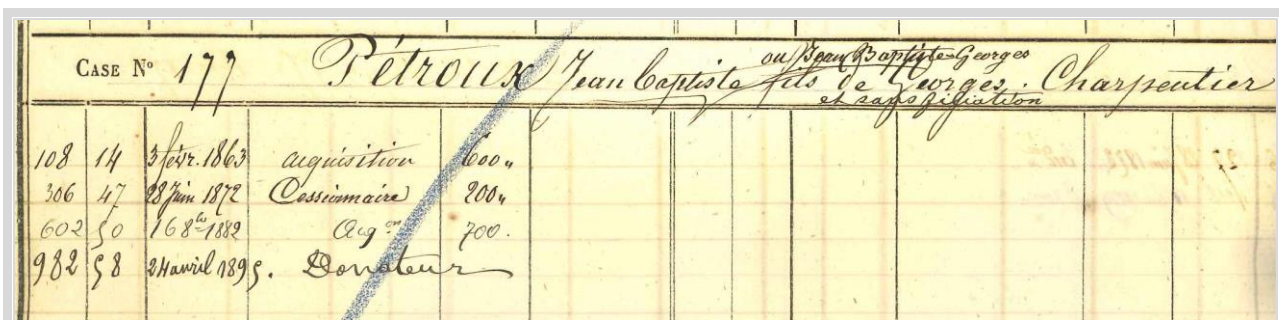 ou Jean Baptiste Georges
CASE N° 177 Pétroux Jean Baptiste fils de Georges. Charpentier
et sans filiation
108 14 3 févr. 1863 acquisition 600 "
306 47 28 Juin 1872 Cessionnaire 200 "
602 50 16 8bre 1882 Acqon 700.
982 58 24 avril 1895. Donateur